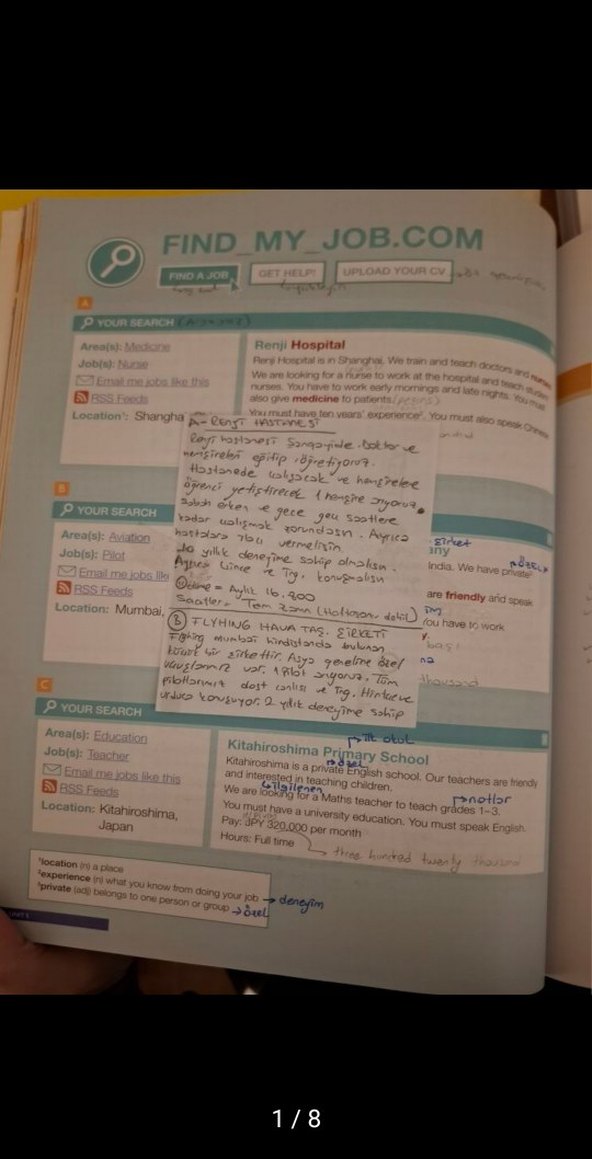 FIND_MY_JOB.COM
FIND A JOB
GET HELP!
UPLOAD YOUR CV
A
YOUR SEARCH
Area(s): Medicine
Job(s): Nurse
Email me jobs like this
RSS Feeds
Location¹: Shangha
Renji Hospital
Renji Hospital is in Shanghai. We train and teach doctors and
We are looking for a nurse to work at the hospital and teach
nurses. You have to work early mornings and late nights. You must
also give medicine to patients.
You must have ten years' experience². You must also speak Chinese
A- RENJİ HASTANESİ
Renji hastanesi Şangayinde. Doktor ve
hemşireleri eğitip, öğretiyoruz.
Hastanede çalışacak ve hemşirelere
öğrenci yetiştirecek 1 hemşire arıyoruz.
Sabah erken ve gece geç saatlere
kadar çalışmak zorundasın. Ayrıca
hastalara ilacı vermelisin.
10 yıllık deneyime sahip olmalısın.
Ayrıca Çince ve İng. konuşmalısın
Ödeme = Aylık 16.800
Saatler = Tam zaman (Haftasonu dahil)
B
YOUR SEARCH
Area(s): Aviation
Job(s): Pilot
Email me jobs lik
RSS Feeds
Location: Mumbai,
şirket
any
özel
India. We have private³
are friendly and speak
You have to work
y.
thousand
B FLYHING HAVA TAŞ. ŞİRKETİ
Flyhing mumbai hindistanda bulunan
küçük bir şirkettir. Asya geneline özel
uçuşlarımız var. 1 pilot arıyoruz. Tüm
pilotlarımız dost canlısı ve İng. Hintçe ve
urduca konuşuyor. 2 yıllık deneyime sahip
C
YOUR SEARCH
Area(s): Education
Job(s): Teacher
Email me jobs like this
RSS Feeds
Location: Kitahiroshima,
Japan
ilk okul
Kitahiroshima Primary School
özel
Kitahiroshima is a private English school. Our teachers are friendly
and interested in teaching children.
ilgilenen
notlar
We are looking for a Maths teacher to teach grades 1–3.
You must have a university education. You must speak English.
Pay: JPY 320,000 per month
Hours: Full time
three hundred twenty thousand
¹location (n) a place
²experience (n) what you know from doing your job → deneyim
³private (adj) belongs to one person or group → özel
UNIT 5
1 / 8